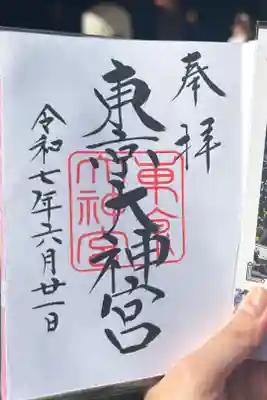 奉拝
東京大神宮
東京大神宮
令和七年六月廿一日